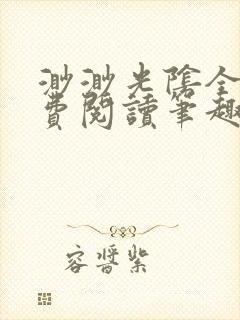 渺渺光陰全
費閱讀筆趣
容醬紫